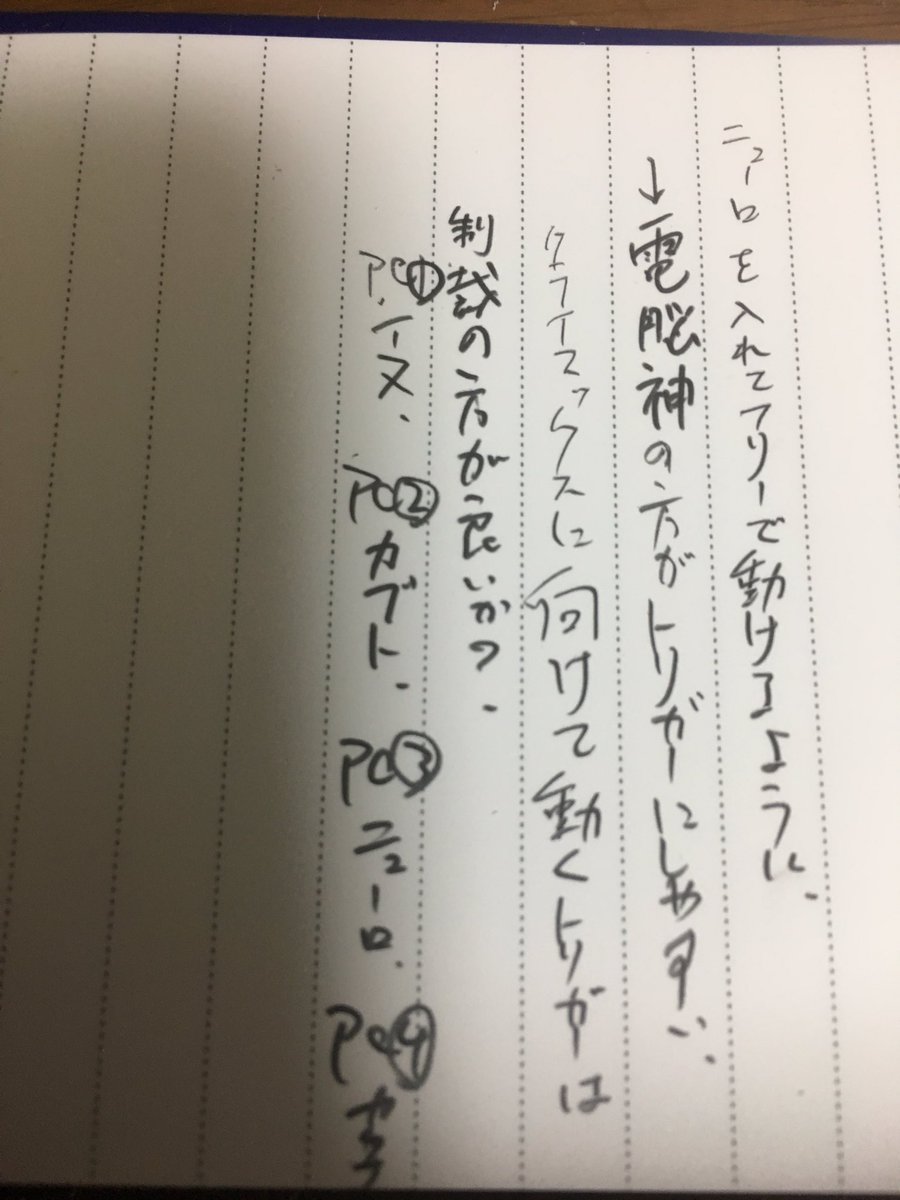 ニューロを入れてフリーで動けるように、
→電脳神の方がトリガーにしやすい、
クライマックスに向けて動くトリガーは
制裁の方が良いかの、
PC①ハヌ、PC②カブト、PC③ニューロ、PC④